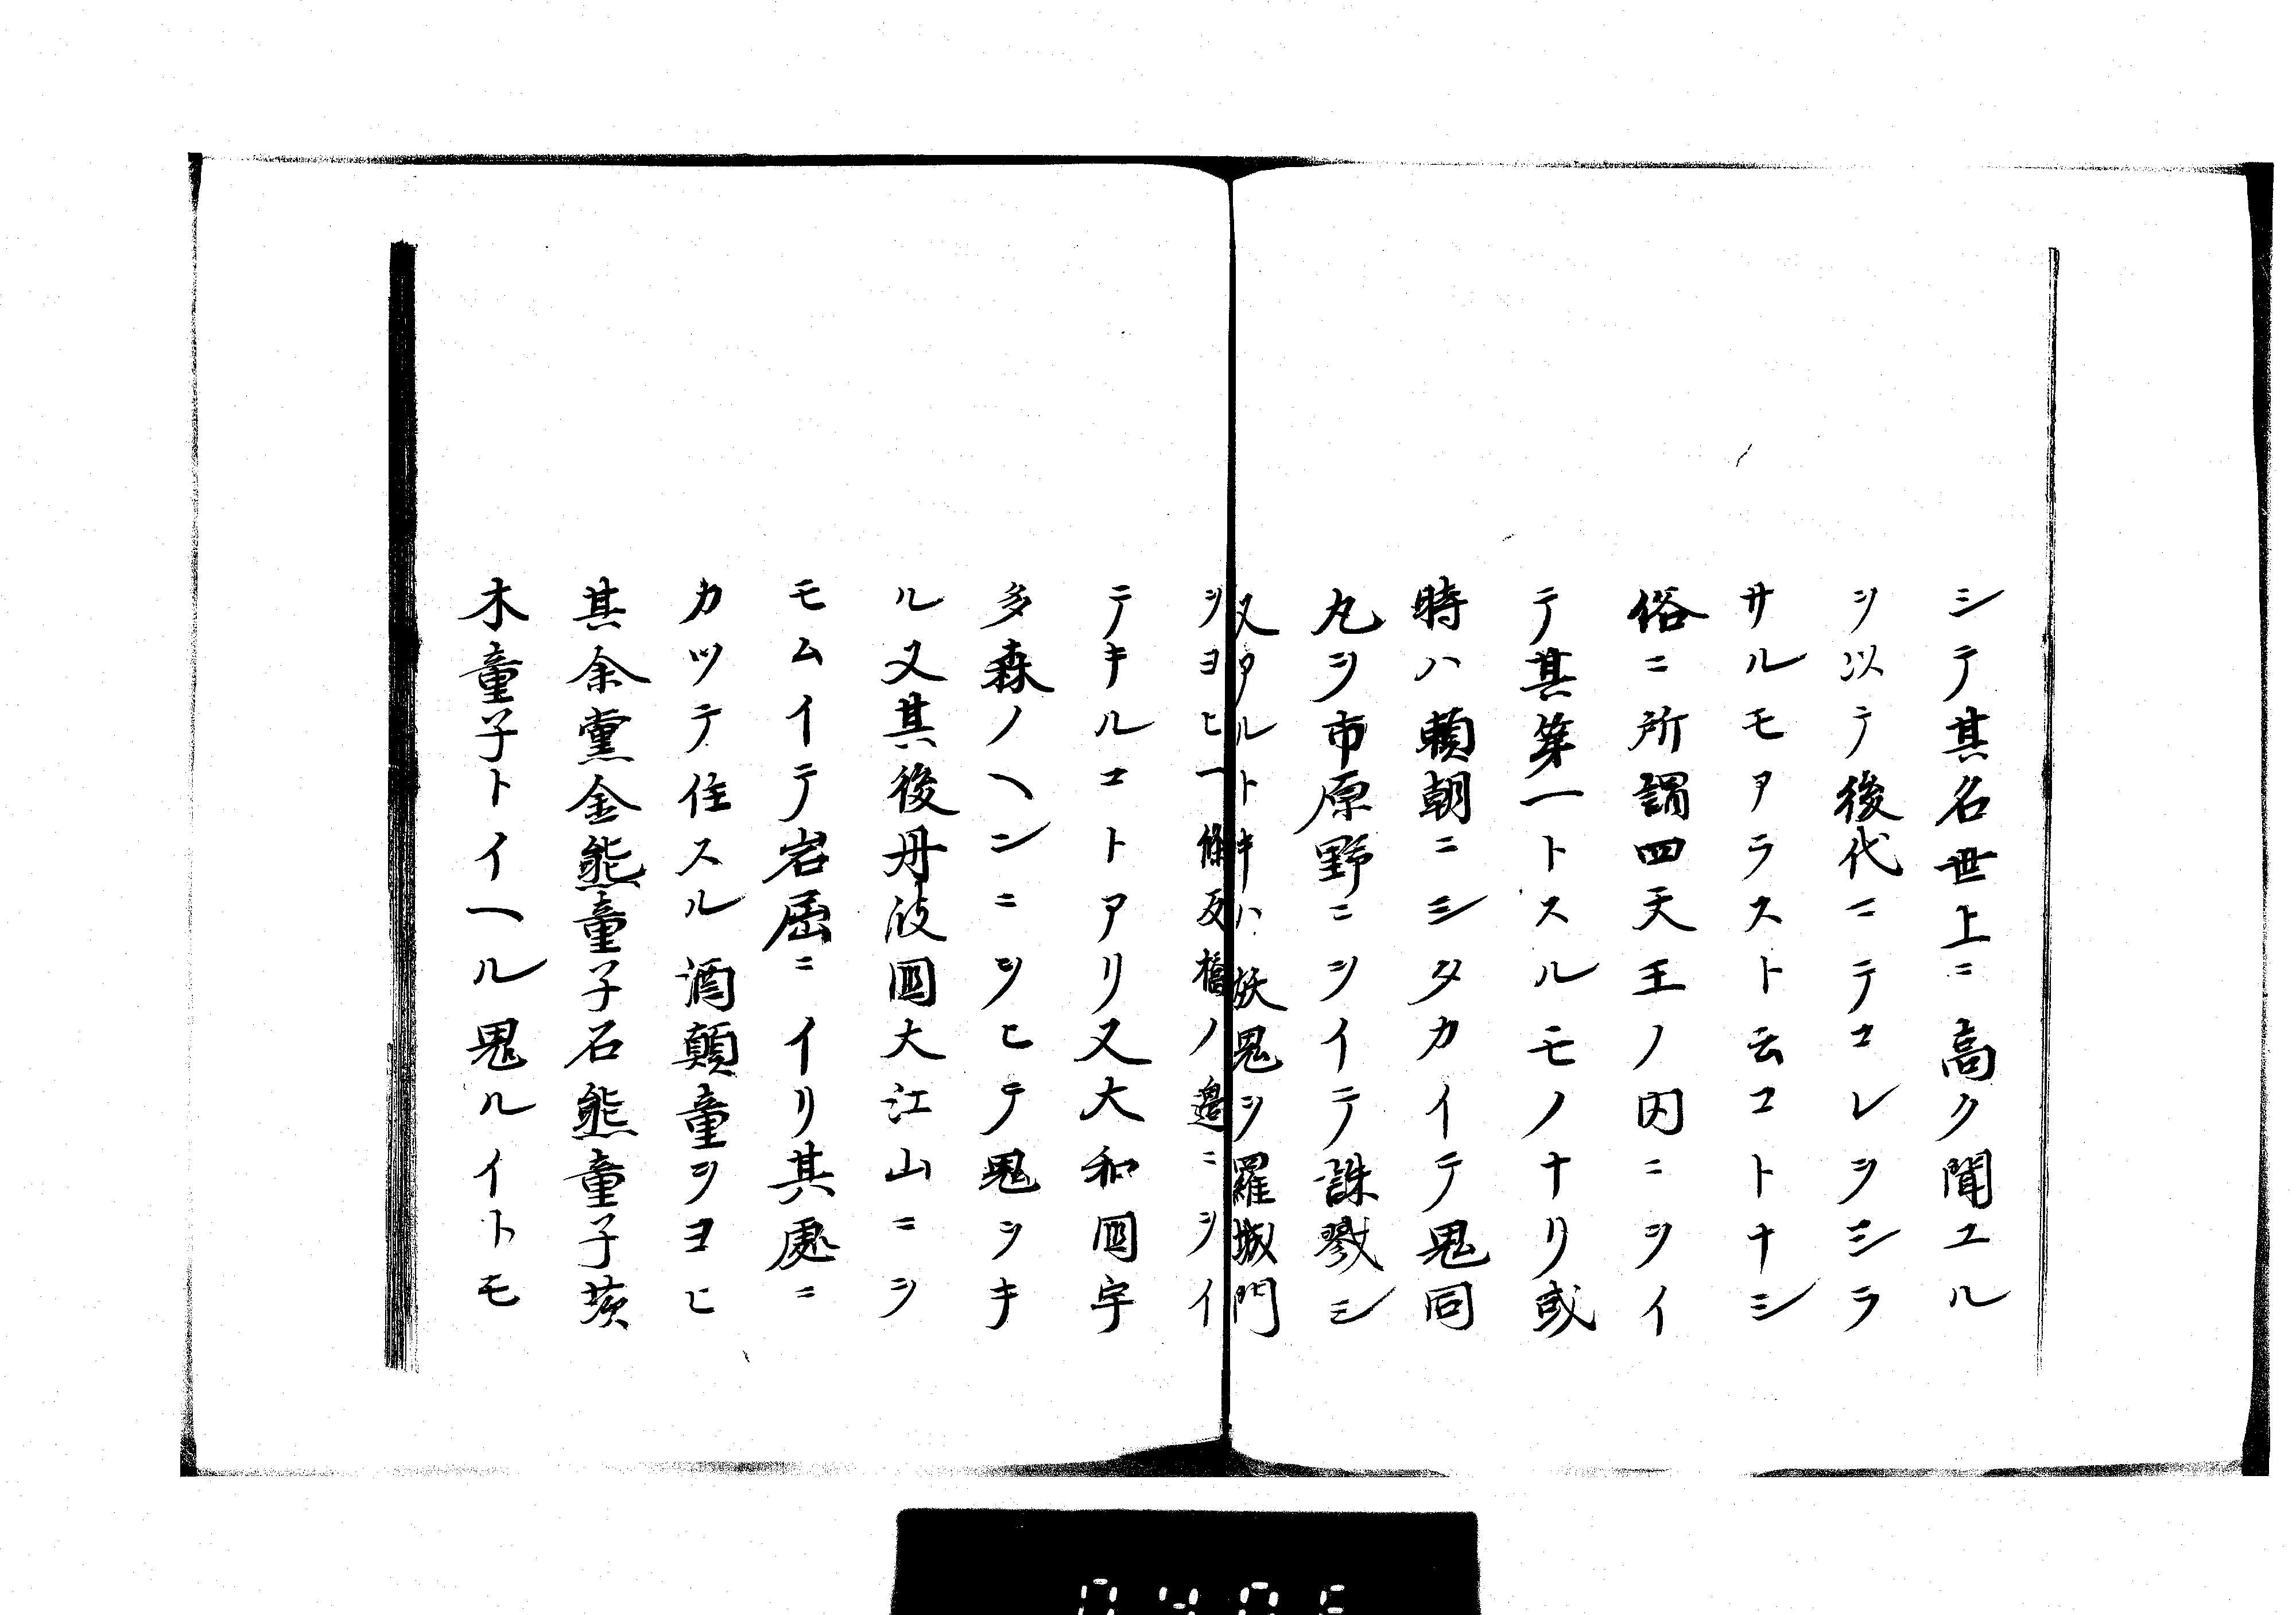 シテ其名世上ニ高ク聞ユル
ヲ以テ後代ニテコレヲシラ
サルモアラスト云コトナシ
俗ニ所謂四天王ノ内ニヲイ
テ其第一トスルモノナリ或
時ハ頼朝ニシタカイテ鬼同
丸ヲ市原野ニヲイテ誅戮シ
又アルトキハ妖鬼ヲ羅城門
ヲヨヒ一條反橋ノ邉ニヲイ
テキルコトアリ又大和国宇
多森ノヘンニヲヒテ鬼ヲキ
ル又其後丹波国大江山ニヲ
モムイテ岩屈ニイリ其處ニ
カツテ住スル酒顛童ヲヨヒ
其余黨金熊童子石熊童子茨
木童子トイヘル鬼ルイトモ